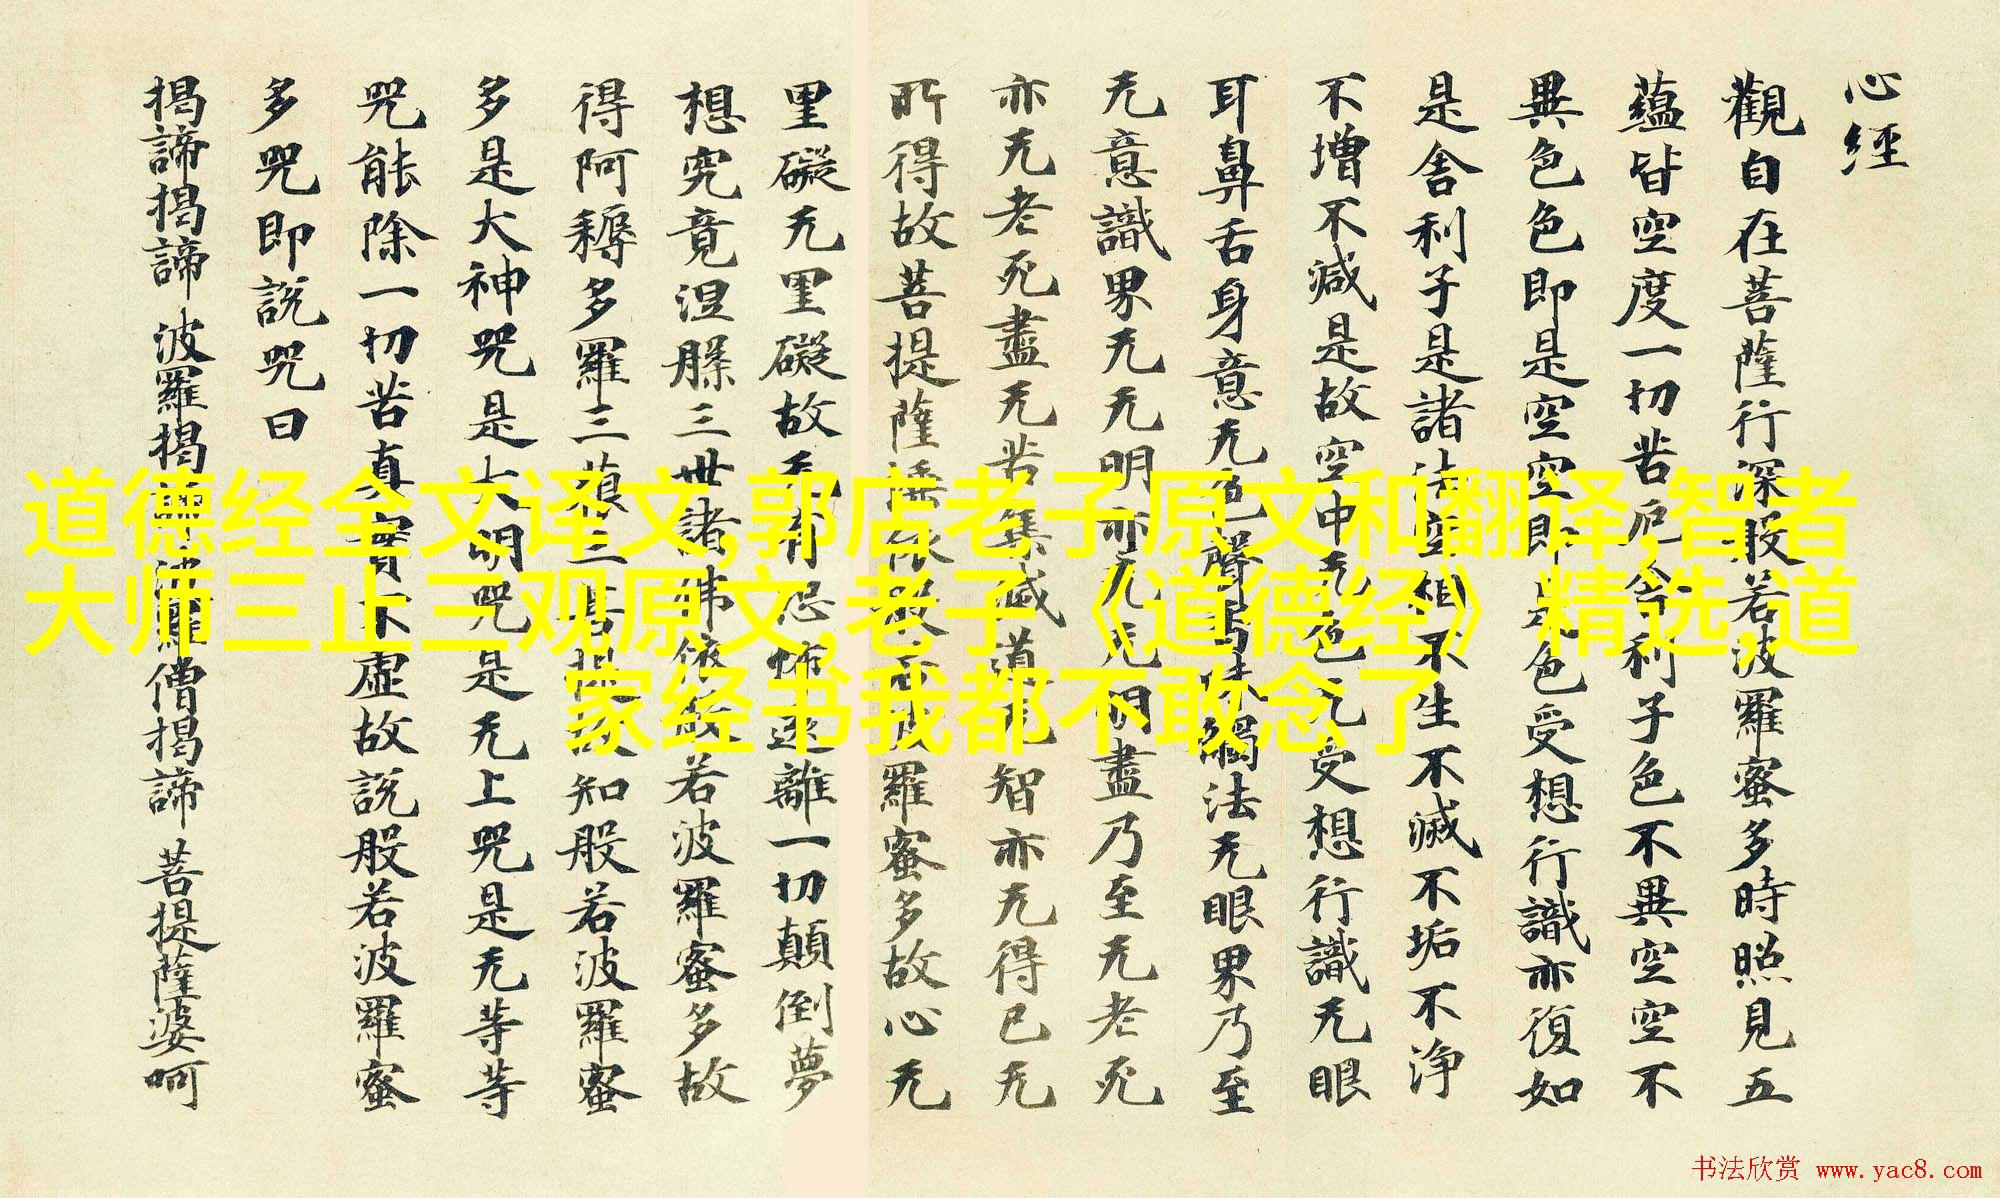 心經
觀自在菩薩行深般若波羅蜜多時照見五
蘊皆空度一切苦厄舍利子色不異空空不
異色色即是空空即是色受想行識亦復如
是舍利子是諸法空相不生不滅不垢不淨
不增不減是故空中无色无受想行識无眼
耳鼻舌身意无色聲香味觸法无眼界乃至
无意識界无无明亦无无明盡乃至无老死
亦无老死盡无苦集滅道无智亦无得已无
所得故菩提薩埵依般若波羅蜜多故心无
罣礙无罣礙故无有恐怖遠離一切顛倒夢
想究竟涅槃三世諸佛依般若波羅蜜多故
得阿耨多羅三藐三菩提故知般若波羅蜜
多是大神咒是大明咒是无上咒是无等等
咒能除一切苦真實不虛故說般若波羅蜜
多咒即說咒曰
揭諦揭諦 波羅揭諦 波羅僧揭諦 菩提薩婆呵
道德经全文译文,郭店老子原文和翻译,智者
大师三止三观原文,老子《道德经》精选,道
家经书我都不敢念了
书法欣赏 www.yac8.com